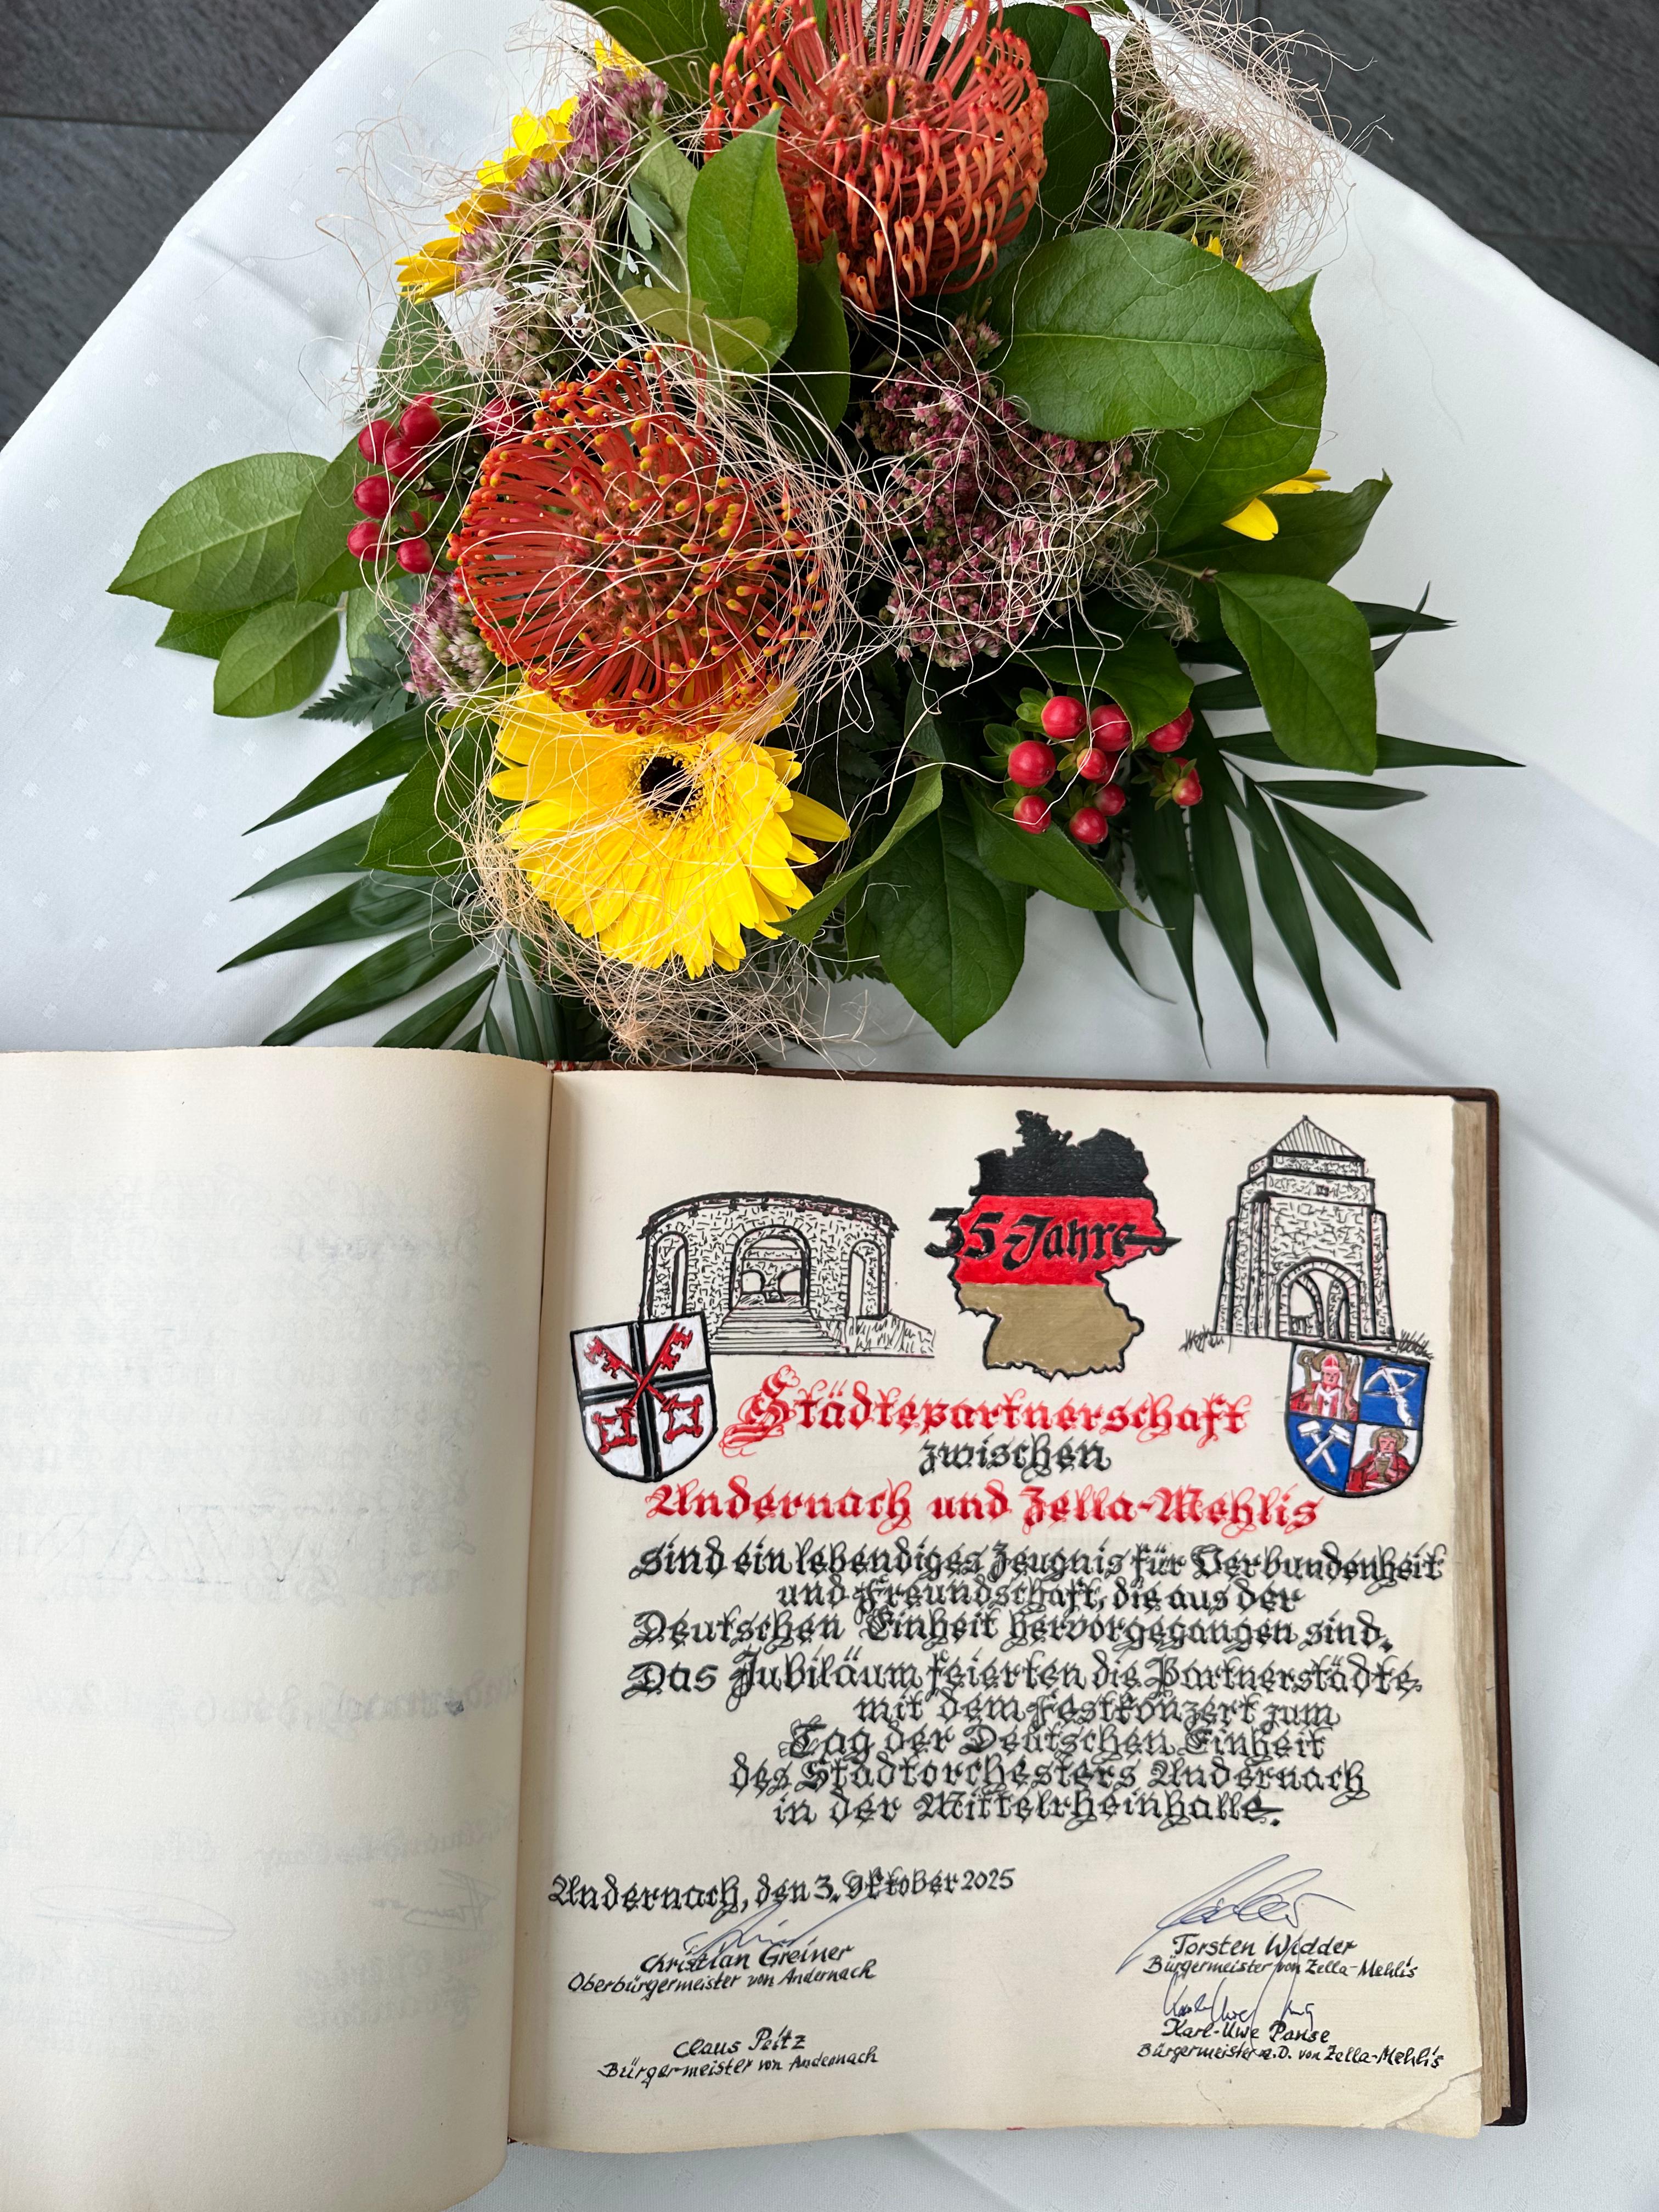 35 Jahre
Städtepartnerschaft
zwischen
Andernach und Zella-Mehlis
sind ein lebendiges Zeugnis für Verbundenheit
und Freundschaft, die aus der
Deutschen Einheit hervorgegangen sind.
Das Jubiläum feierten die Partnerstädte
mit dem Festkonzert zum
Tag der Deutschen Einheit
des Stadtorchesters Andernach
in der Mittelrheinhalle.
Andernach, den 3. Oktober 2025
Christian Greiner
Oberbürgermeister von Andernach
Torsten Widder
Bürgermeister von Zella-Mehlis
Claus Peitz
Bürgermeister von Andernach
Karl-Uwe Panse
Bürgermeister a.D. von Zella-Mehlis